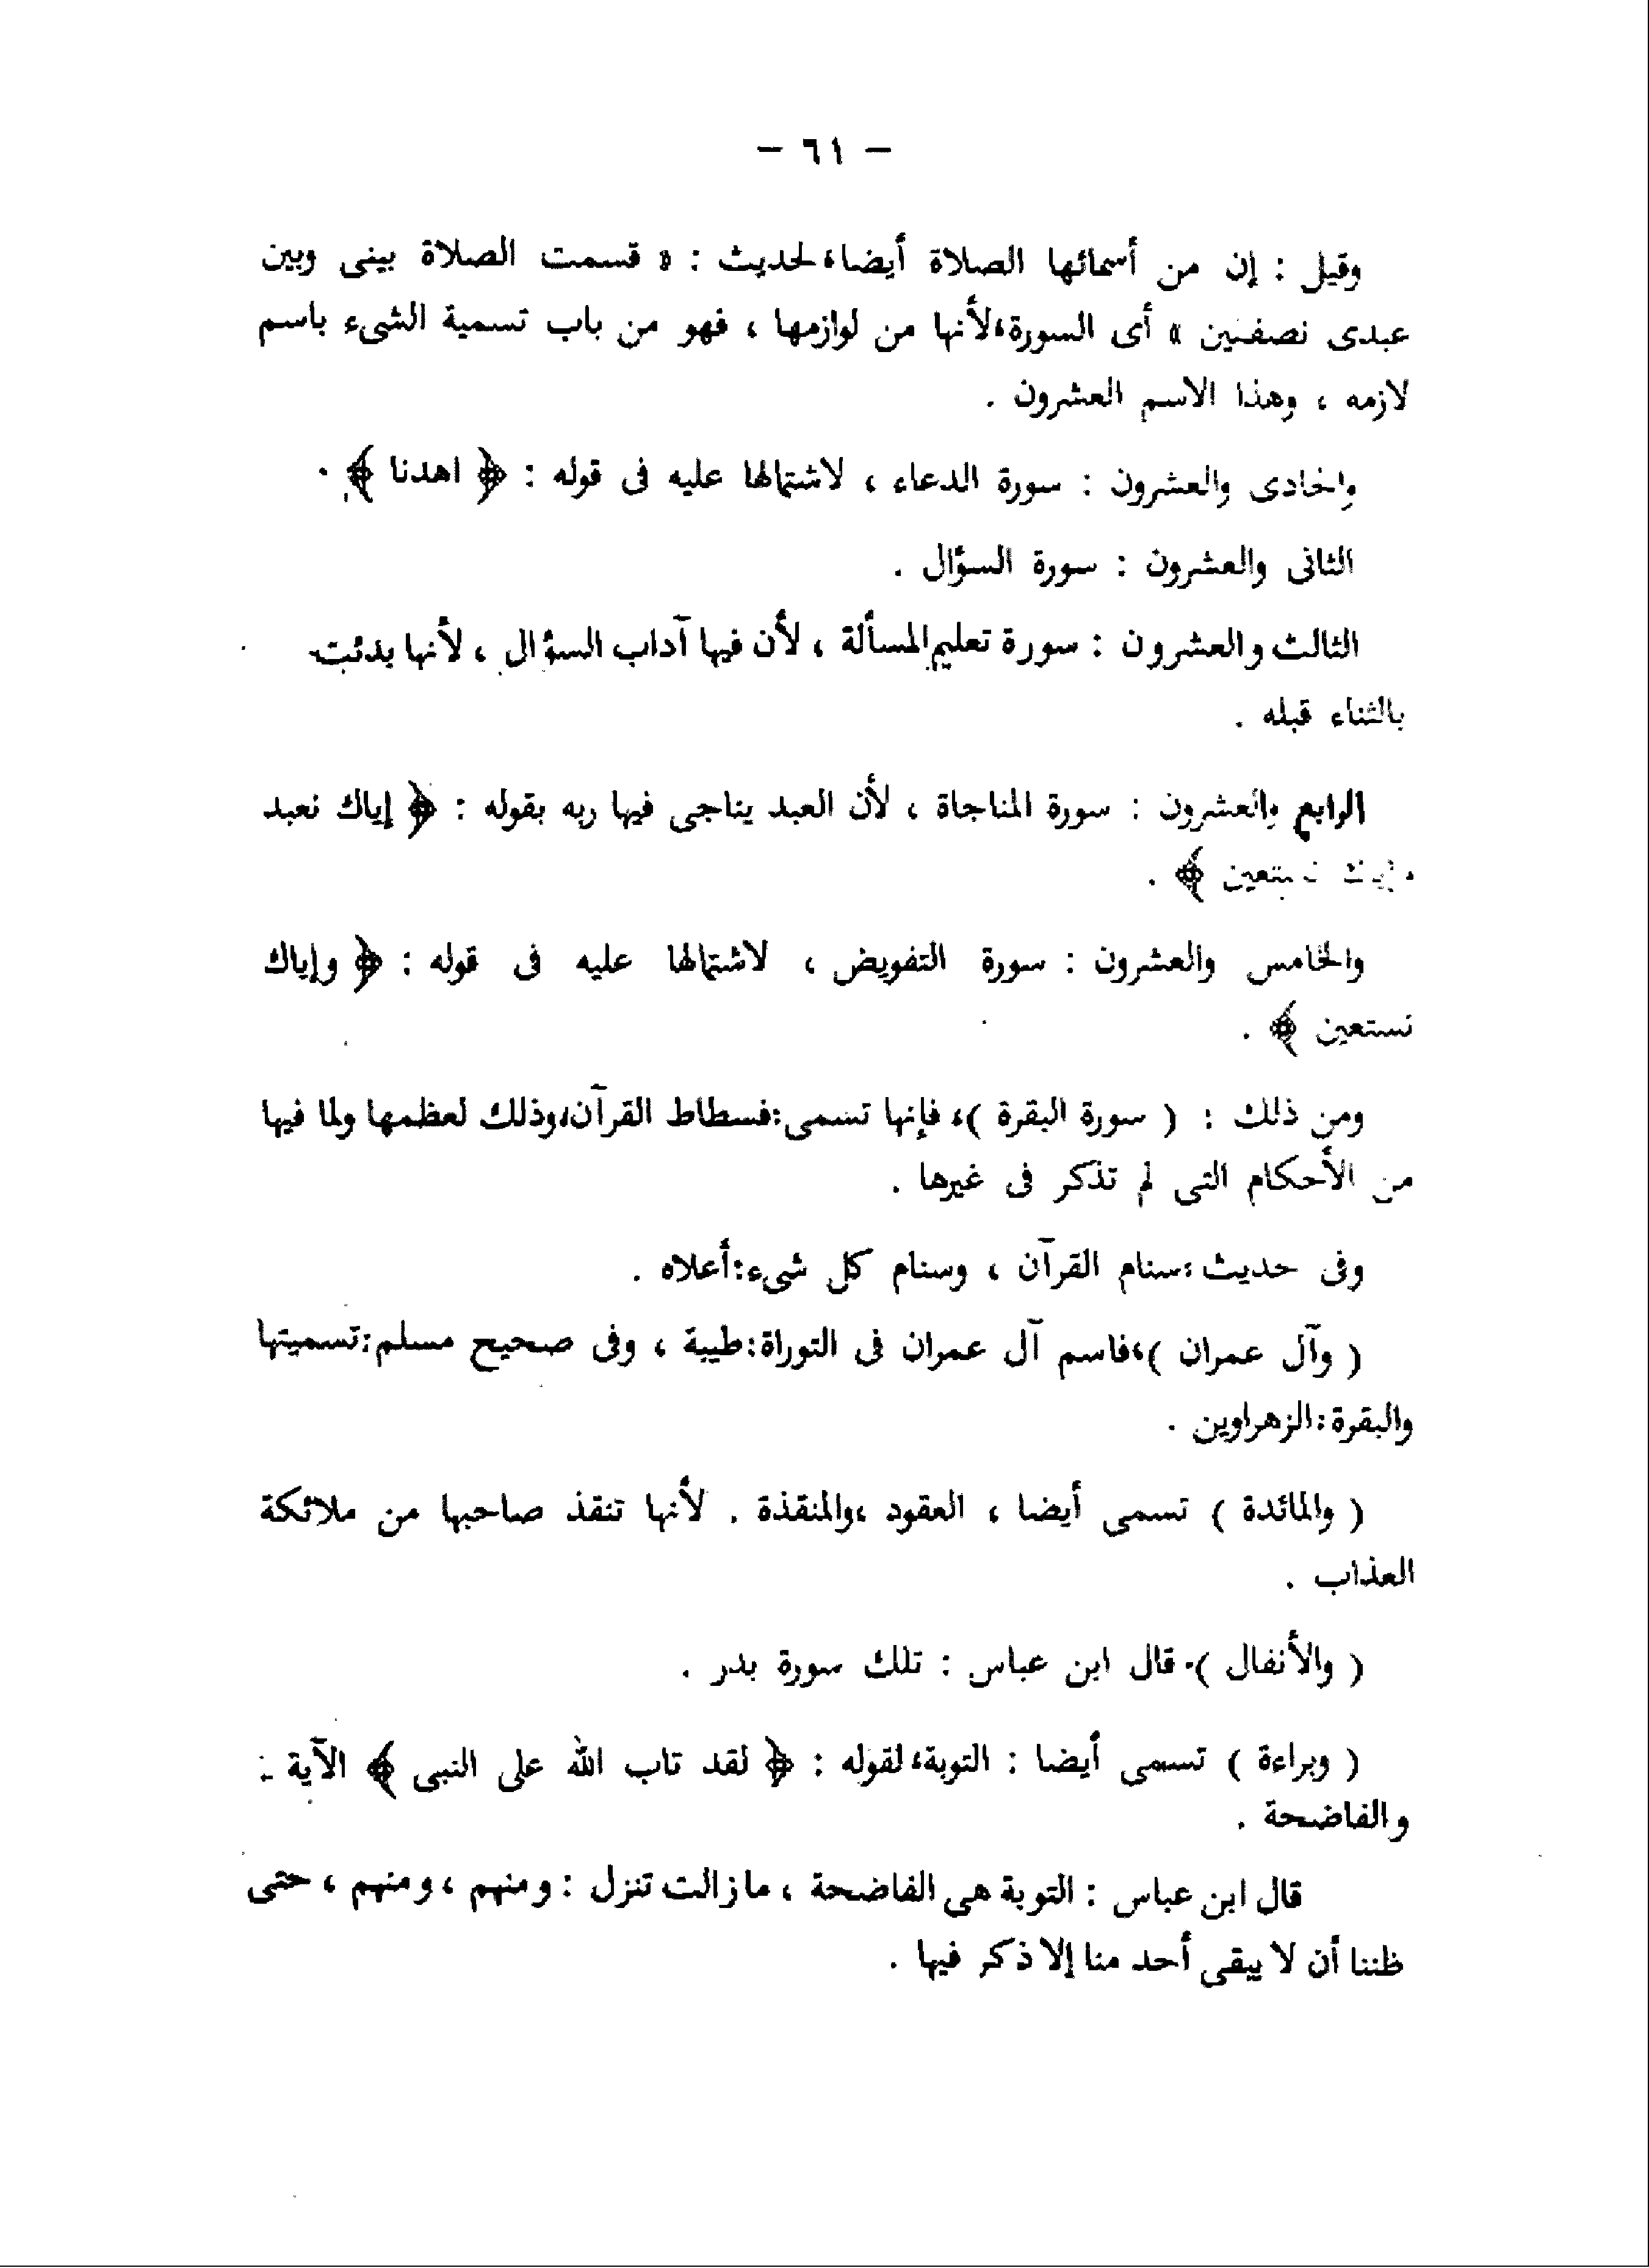 – ٦١ –
وقيل : إن من أسمائها الصلاة أيضا، لحديث : « قسمت الصلاة بينى وبين
عبدى نصفين » أى السورة، لأنها من لوازمها ، فهو من باب تسمية الشىء باسم
لازمه ، وهذا الاسم العشرون .
والحادى والعشرون : سورة الدعاء ، لاشتمالها عليه فى قوله : ﴿ اهدنا ﴾ .
الثانى والعشرون : سورة السؤال .
الثالث والعشرون : سورة تعليم المسألة ، لأن فيها آداب السؤال ، لأنها بدئت
بالثناء قبله .
الرابع والعشرون : سورة المناجاة ، لأن العبد يناجى فيها ربه بقوله : ﴿ إياك نعبد
وإياك نستعين ﴾ .
والخامس والعشرون : سورة التفويض ، لاشتمالها عليه فى قوله : ﴿ وإياك
نستعين ﴾ .
ومن ذلك : ( سورة البقرة )، فإنها تسمى: فسطاط القرآن، وذلك لعظمها ولما فيها
من الأحكام التى لم تذكر فى غيرها .
وفى حديث : سنام القرآن ، وسنام كل شىء: أعلاه .
( وآل عمران )، فاسم آل عمران فى التوراة: طيبة ، وفى صحيح مسلم: تسميتها
والبقرة: الزهراوين .
( والمائدة ) تسمى أيضا ، العقود ، والمنقذة . لأنها تنقذ صاحبها من ملائكة
العذاب .
( والأنفال ). قال ابن عباس : تلك سورة بدر .
( وبراءة ) تسمى أيضا : التوبة، لقوله : ﴿ لقد تاب الله على النبى ﴾ الآية :
والفاضحة .
قال ابن عباس : التوبة هى الفاضحة ، مازالت تنزل : ومنهم ، ومنهم ، حتى
ظننا أن لا يبقى أحد منا إلا ذكر فيها .